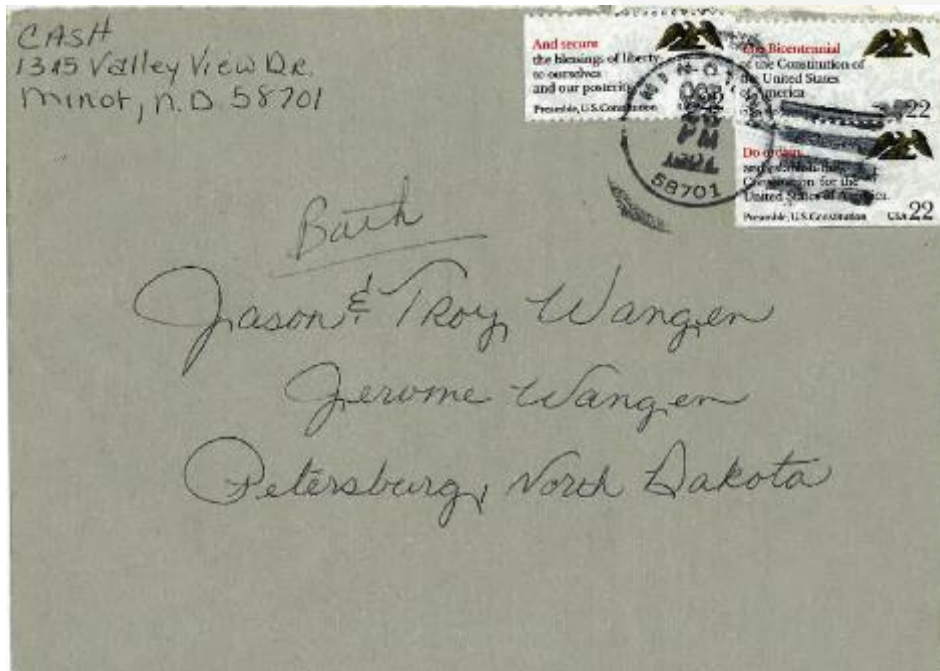 CASH
1315 Valley View DR.
Minot, N.D 58701
And secure
the blessings of liberty
to ourselves
and our posterity
Preamble, U.S. Constitution
The Bicentennial
of the Constitution of
the United States
of America
22
Do ordain
and establish this
Constitution for the
United States of America.
Preamble, U.S. Constitution USA 22
MINOT, ND
OCT
PM
58701
Jason & Troy Wangen
Jerome Wangen
Petersburg, North Dakota